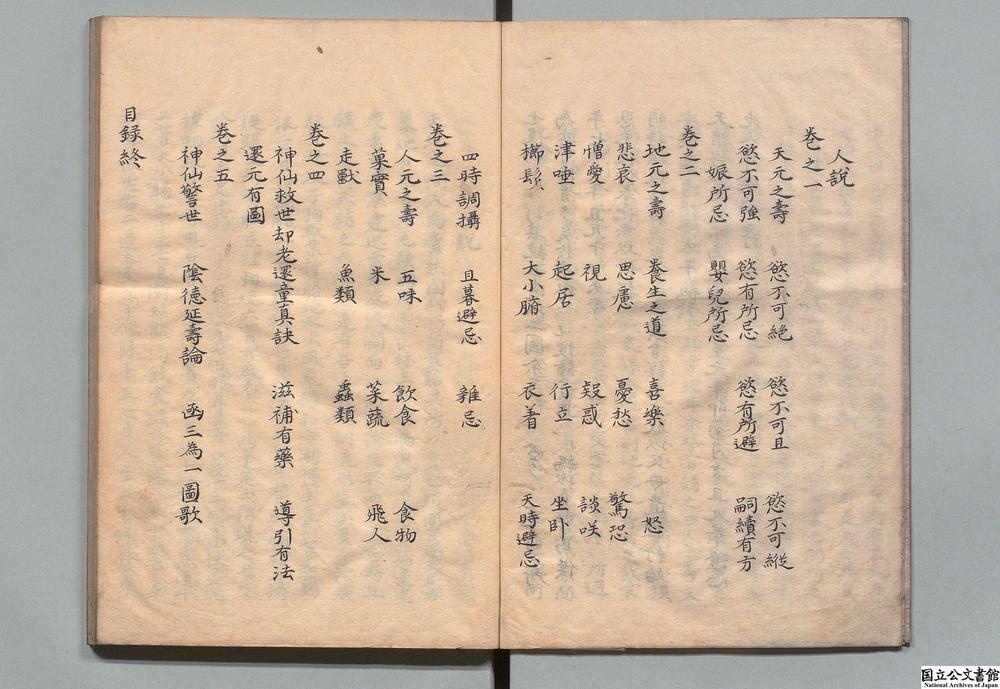 人說
卷之一
天元之壽 慾不可絕 慾不可且 慾不可縱
慾不可強 慾有所忌 慾有所避 嗣續有方
娠所忌 嬰兒所忌
卷之二
地元之壽 養生之道 喜樂 怒
悲哀 思慮 憂愁 驚恐
憎愛 視 疑惑 談咲
津唾 起居 行立 坐卧
擳髮 大小腑 衣着 天時避忌
四時調攝 旦暮避忌 雜忌
卷之三
人元之壽 五味 飲食 食物
菓實 米 菜蔬 飛人
走獸 魚類 蟲類
卷之四
神仙救世却老還童真訣 滋補有藥 導引有法
還元有圖
卷之五
神仙警世 陰德延壽論 函三為一圖歌
目錄終
国立公文書館
National Archives of Japan